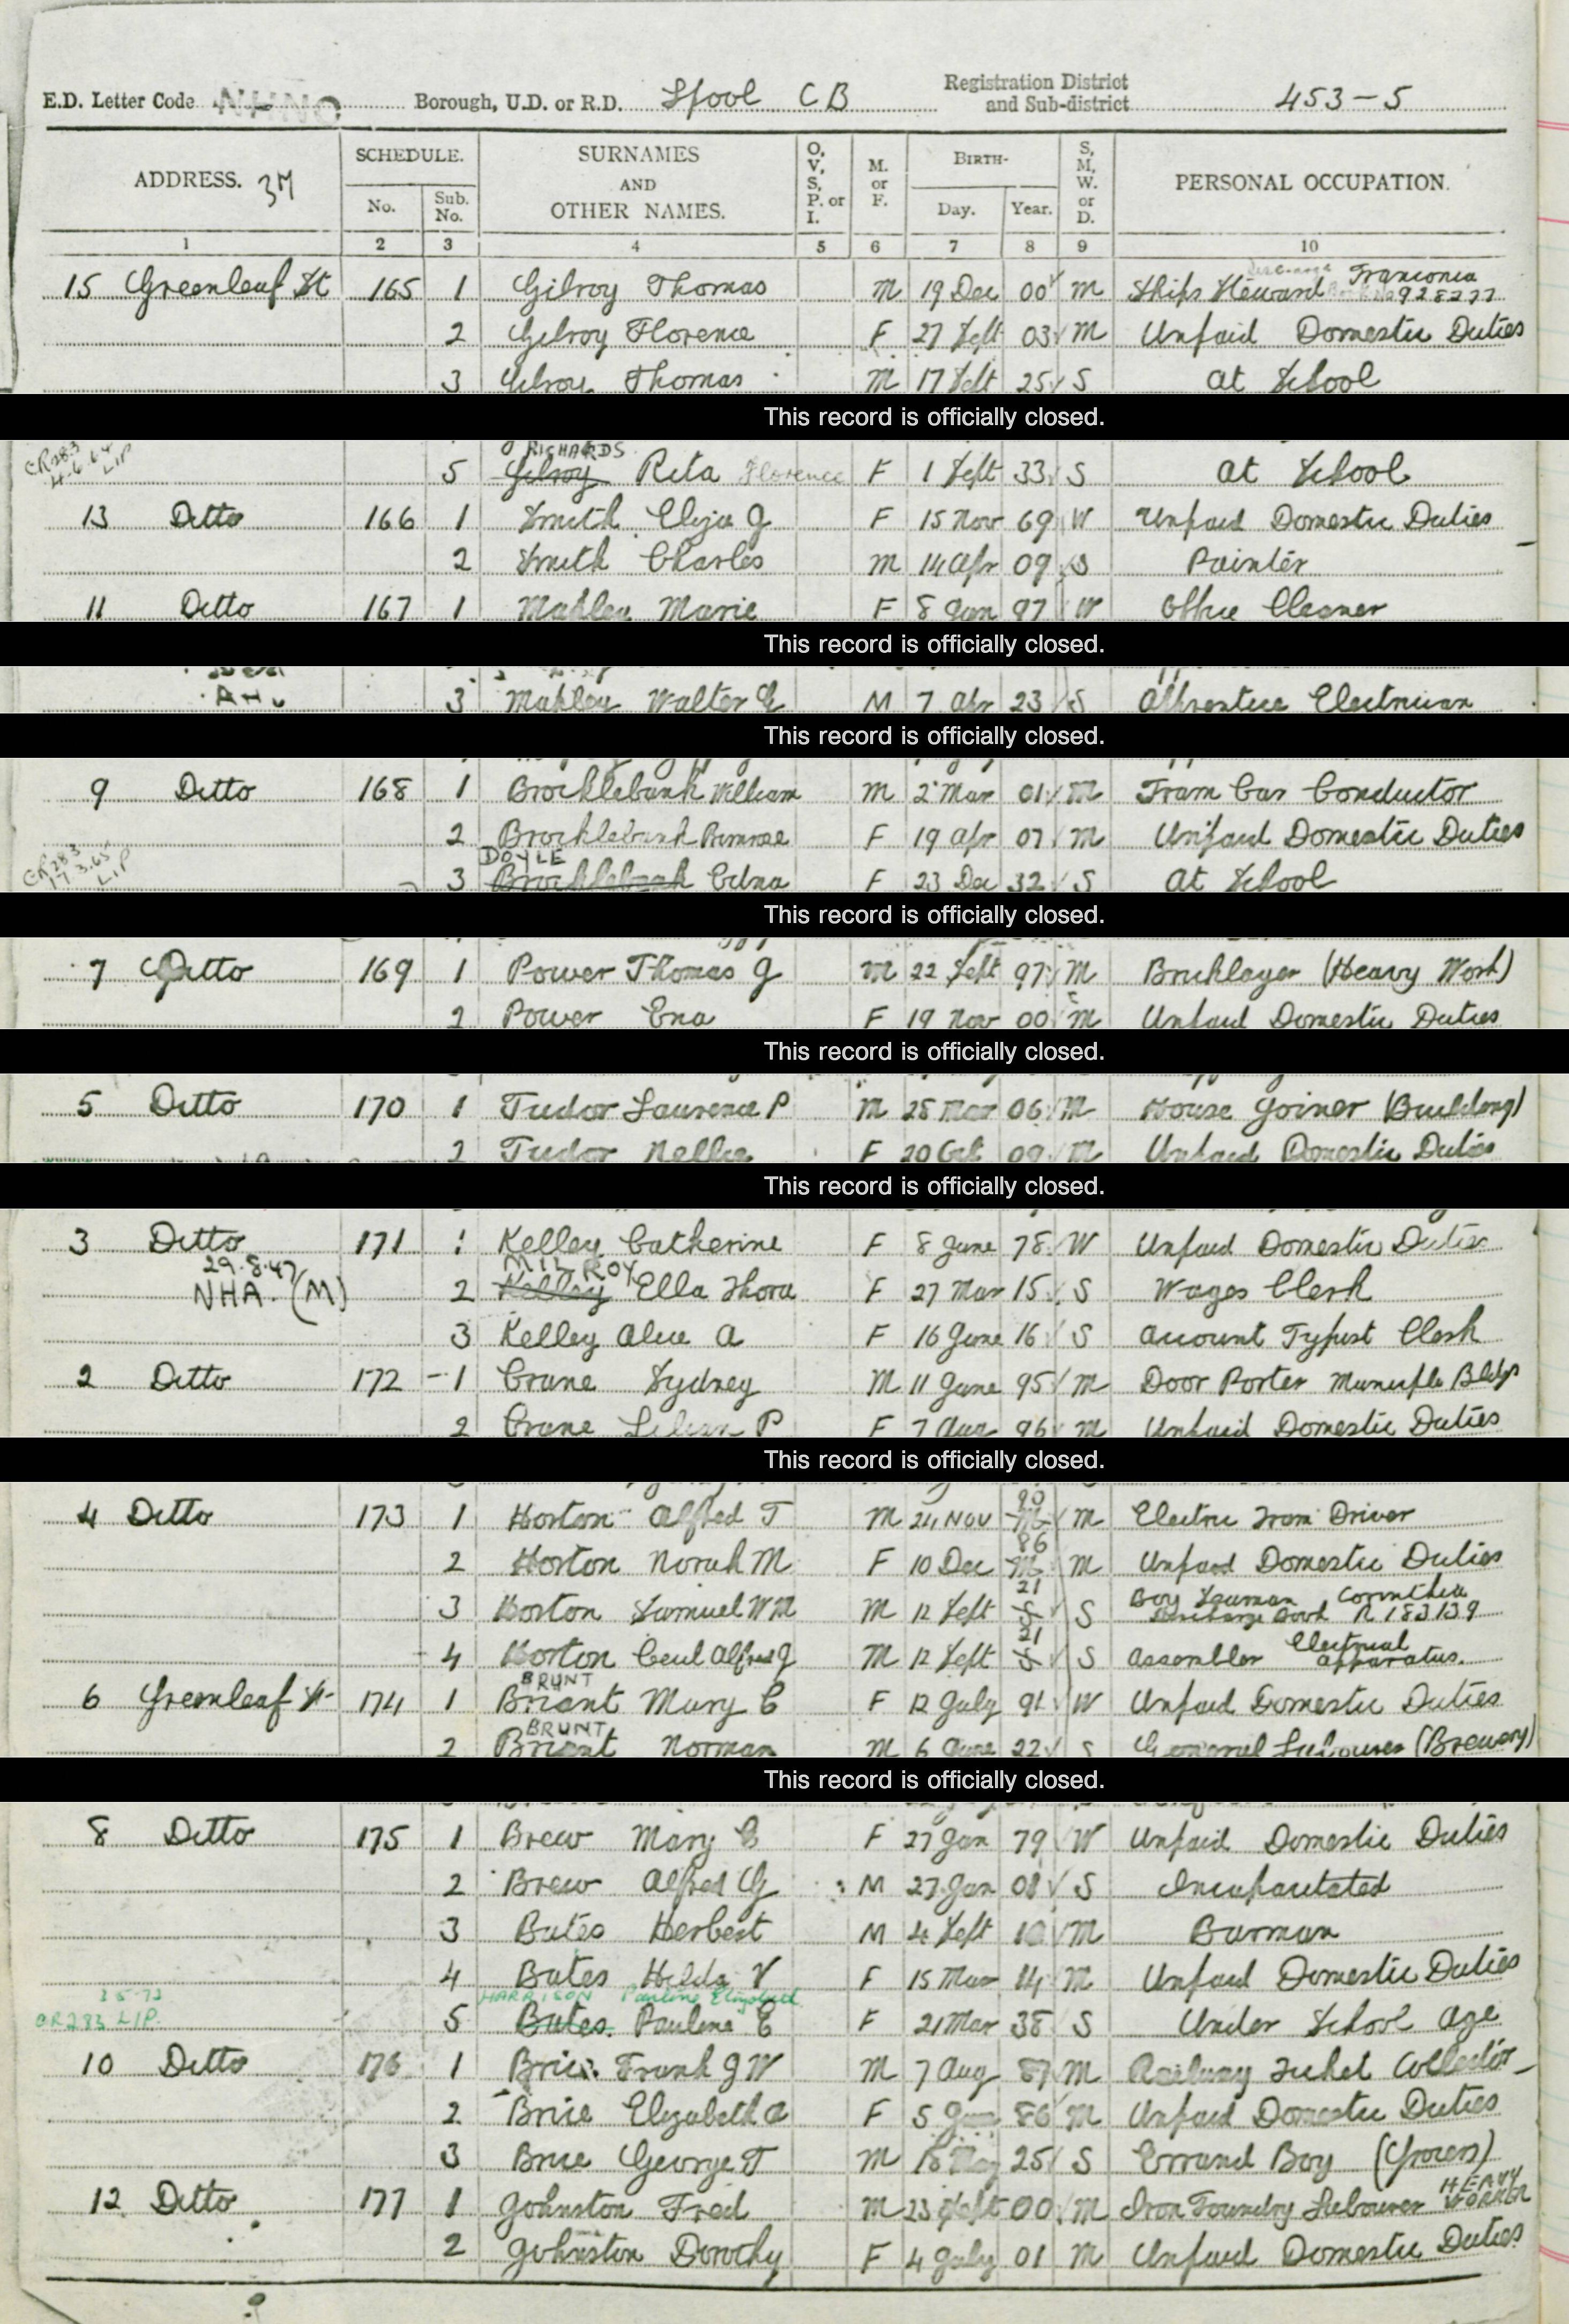 E.D. Letter Code NHNO Borough, U.D. or R.D. L'pool C B Registration District and Sub-district 453-5
ADDRESS. 3M SCHEDULE. No. Sub. No. SURNAMES AND OTHER NAMES. O, V, S, P. or I. M. or F. BIRTH- Day. Year. S, M, W. or D. PERSONAL OCCUPATION.
1 2 3 4 5 6 7 8 9 10
15 Greenleaf St 165 1 Gilroy Thomas M 19 Dec 00 M Ships Steward Franconia 928277
2 Gilroy Florence F 27 Sept 03 M Unpaid Domestic Duties
3 Gilroy Thomas M 17 Sept 25 S At School
This record is officially closed.
CR283 4.6.64 LIP RICHARDS
5 Gilroy Rita Florence F 1 Sept 33 S At School
13 Ditto 166 1 Smith Eliza J F 15 Nov 69 W Unpaid Domestic Duties
2 Smith Charles M 14 Apr 09 S Painter
11 Ditto 167 1 Mabley Marie F 8 Jan 97 W Office Cleaner
This record is officially closed.
3 Mabley Walter E M 7 Apr 23 S Apprentice Electrician
This record is officially closed.
9 Ditto 168 1 Brocklebank William M 2 Mar 01 M Tram Car Conductor
2 Brocklebank Primrose F 19 Apr 07 M Unpaid Domestic Duties
CR283 17.3.65 LIP DOYLE
3 Brocklebank Edna F 23 Dec 32 S At School
This record is officially closed.
7 Ditto 169 1 Power Thomas J M 22 Sept 97 M Bricklayer (Heavy Work)
2 Power Ena F 19 Nov 00 M Unpaid Domestic Duties
This record is officially closed.
5 Ditto 170 1 Tudor Laurence P M 28 Mar 06 M House Joiner (Building)
2 Tudor Nellie F 20 Oct 09 M Unpaid Domestic Duties
This record is officially closed.
3 Ditto 171 1 Kelley Catherine F 8 June 78 W Unpaid Domestic Duties
29.8.47 MILROY
NHA. (M) 2 Kelley Ella Thora F 27 Mar 15 S Wages Clerk
3 Kelley Alice A F 16 June 16 S Account Typist Clerk
2 Ditto 172 1 Crane Sydney M 11 June 95 M Door Porter Municipl Bldgs
2 Crane Lilian P F 7 Aug 96 M Unpaid Domestic Duties
This record is officially closed.
4 Ditto 173 1 Horton Alfred T M 24 Nov 90 M Electric Tram Driver
2 Horton Norah M F 10 Dec 86 M Unpaid Domestic Duties
3 Horton Samuel W M M 12 Sept 21 S Boy Seaman Corinthia Discharge Book R 183139
4 Horton Cecil Alfred J M 12 Sept 21 S Assembler Electrical apparatus.
BRUNT
6 Greenleaf St 174 1 Briant Mary E F 12 July 91 W Unpaid Domestic Duties
BRUNT
2 Briant Norman M 6 June 22 S General Labourer (Brewery)
This record is officially closed.
8 Ditto 175 1 Brew Mary E F 27 Jan 79 W Unpaid Domestic Duties
2 Brew Alfred G M 27 Jan 08 S Incapacitated
3 Bates Herbert M 4 Sept 10 M Barman
4 Bates Hilda V F 15 Mar 14 M Unpaid Domestic Duties
HARRISON Pauline Elizabeth
CR283 LIP. 5 Bates Pauline E F 21 Mar 38 S Under School Age
10 Ditto 176 1 Brice Frank J W M 7 Aug 87 M Railway Ticket Collector
2 Brice Elizabeth A F 5 Jan 86 M Unpaid Domestic Duties
3 Brice George T M 18 May 25 S Errand Boy (Grocers)
12 Ditto 177 1 Johnston Fred M 23 Sept 00 M Iron Foundry Labourer HEAVY WORKER
2 Johnston Dorothy F 4 July 01 M Unpaid Domestic Duties